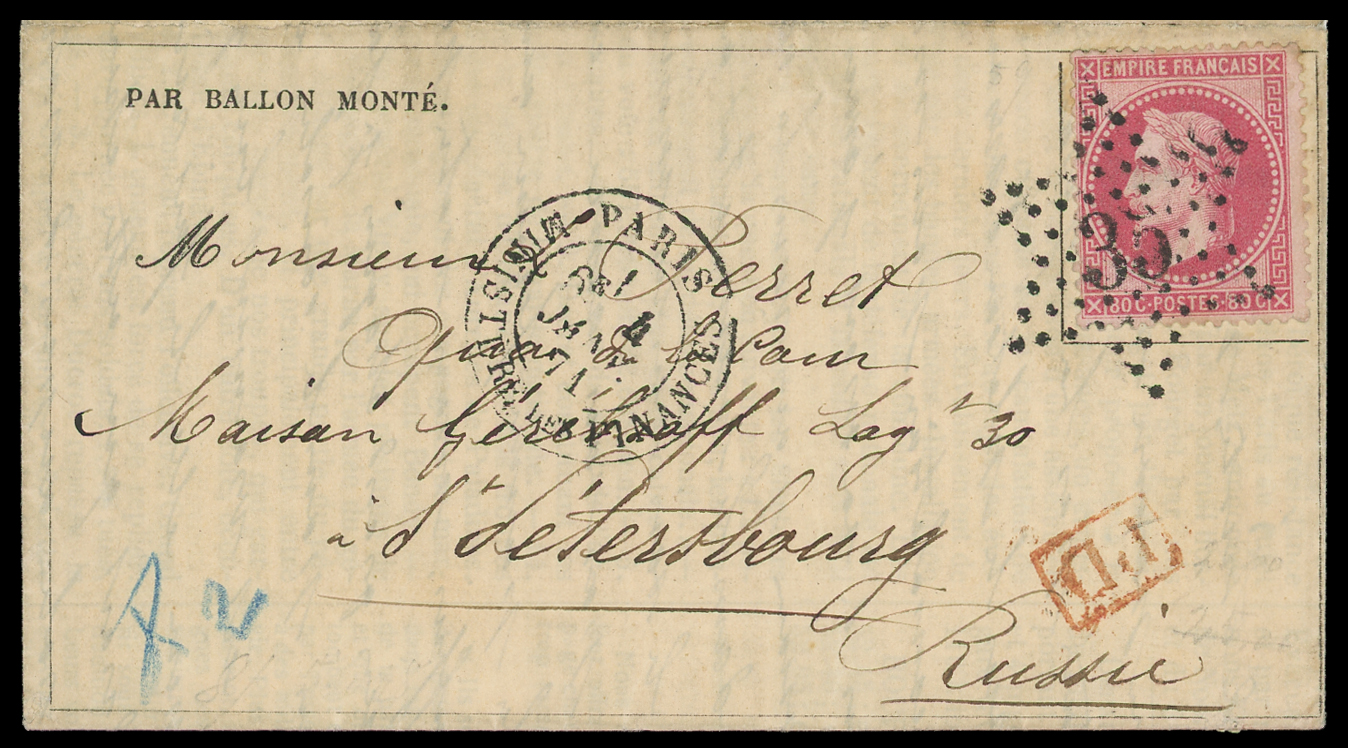 PAR BALLON MONTÉ.
EMPIRE FRANÇAIS
35
80 C · POSTES · 80 C
PARIS
JANV
71
MINISTÈRE DES FINANCES
Monsieur Perret
Quai de la Cour
Maison Log^t 30
à S^t Pétersbourg
Russie
PD